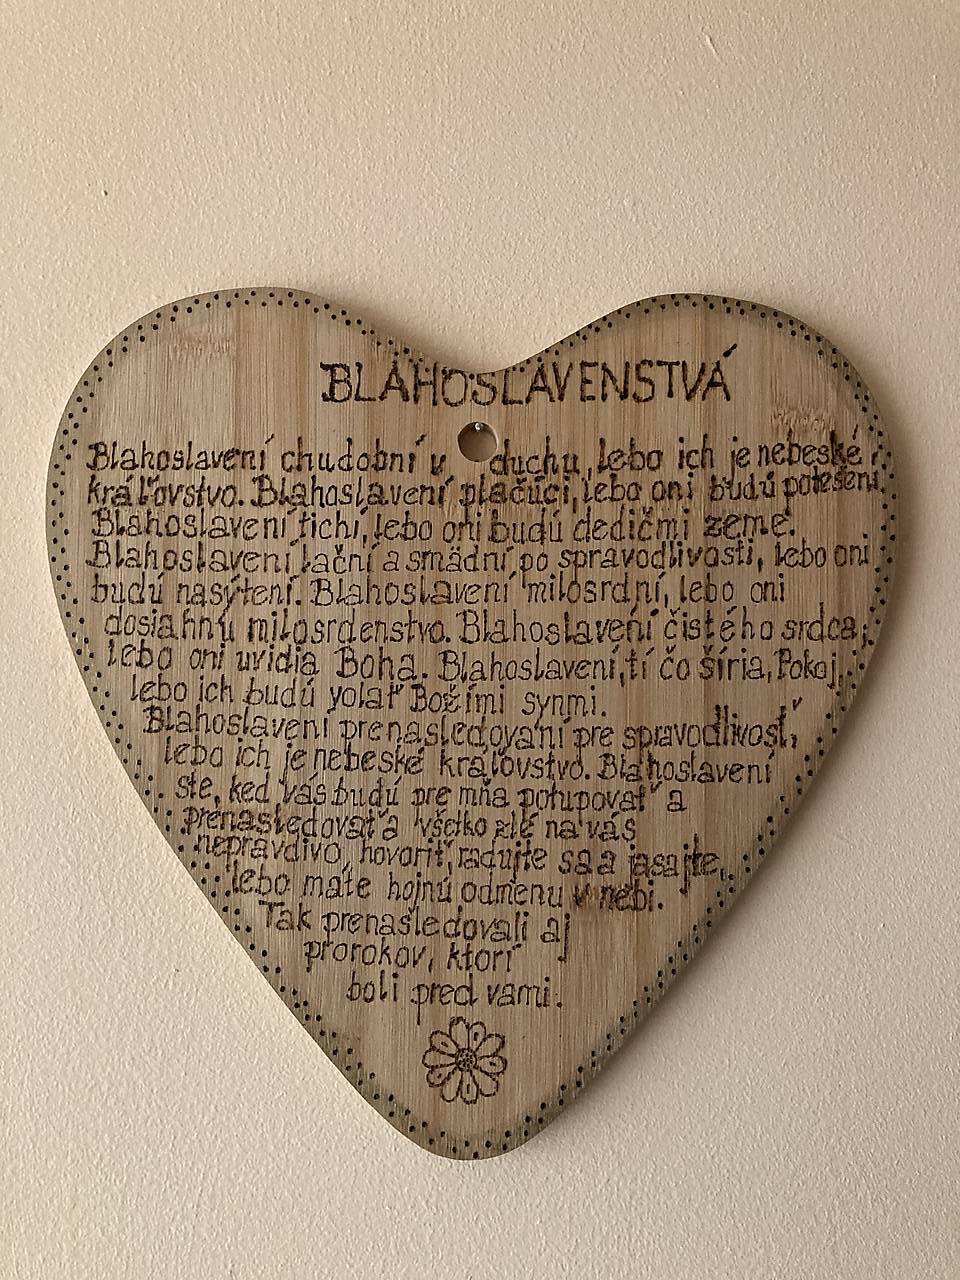 BLAHOSLAVENSTVÁ
Blahoslavení chudobní v duchu, lebo ich je nebeské
kráľovstvo. Blahoslavení plačúci, lebo oni budú potešení.
Blahoslavení tichí, lebo oni budú dedičmi zeme.
Blahoslavení lační a smädní po spravodlivosti, lebo oni
budú nasýtení. Blahoslavení milosrdní, lebo oni
dosiahnu milosrdenstvo. Blahoslavení čistého srdca,
lebo oni uvidia Boha. Blahoslavení, tí čo šíria, Pokoj,
lebo ich budú volať Božími synmi.
Blahoslavení prenasledovaní pre spravodlivosť,
lebo ich je nebeské kráľovstvo. Blahoslavení
ste, keď vás budú pre mňa potupovať a
prenasledovať a všetko zlé na vás
nepravdivo, hovoriť, radujte sa a jasajte,
lebo máte hojnú odmenu v nebi.
Tak prenasledovali aj
prorokov, ktorí
boli pred vami.